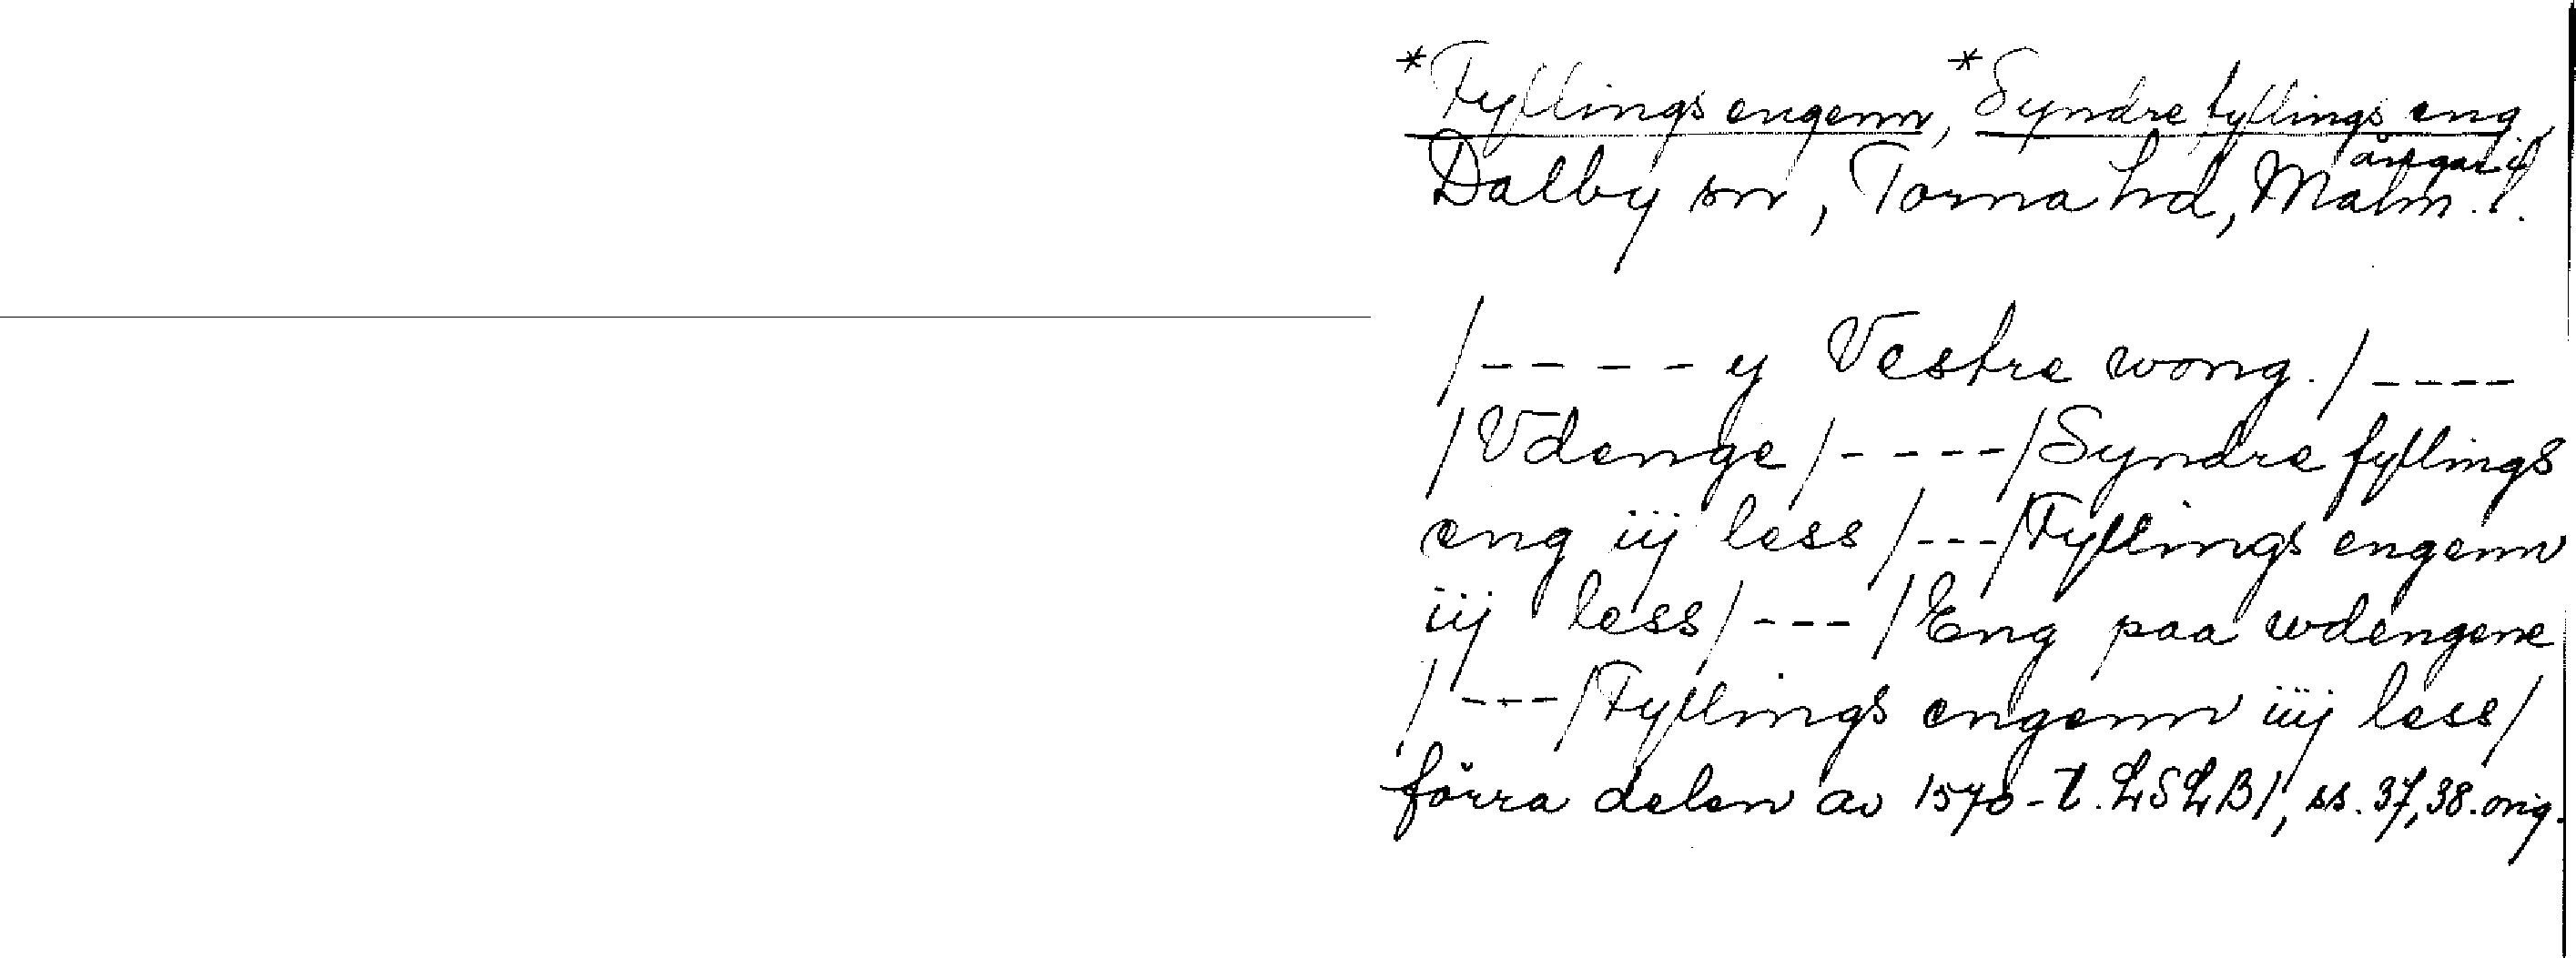 *Fyllings engenn, *Syndre fyllings eng,
ängar i
Dalby sn, Torna hd, Malm. l.
/---- y Vestre wong. /----
/Vdenge/----/Syndre fyllings
eng iij less /---/Fyllings engenn
iij less/---/Eng paa wdengene
/---/Fyllings engenn iiij less/
förra delen av 1570-t. LSLB1, ss. 37, 38. orig.